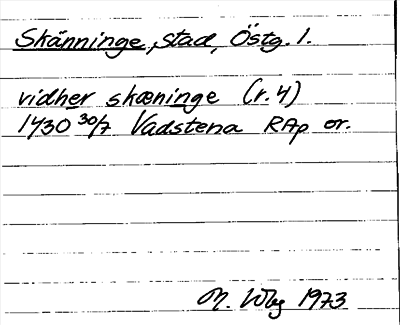 Skänninge, stad, Östg. l.
vidher skæninge (r. 4)
1430 30/7 Vadstena RAp or.
M. Wbg 1973